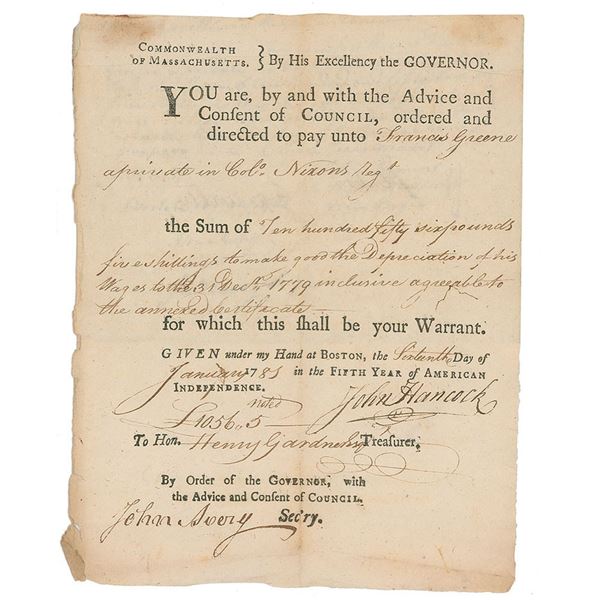 COMMONWEALTH OF MASSACHUSETTS. } By His Excellency the GOVERNOR.
YOU are, by and with the Advice and
Consent of COUNCIL, ordered and
directed to pay unto Francis Greene
a private in Colo. Nixons Regt
the Sum of Ten hundred fifty six pounds
five shillings to make good the Depreciation of his
Wages to the 31 Decr. 1779 inclusive agreeable to
the annexed Certificate
for which this shall be your Warrant.
GIVEN under my Hand at BOSTON, the Sixteenth Day of
January 1781 in the FIFTH YEAR of AMERICAN
INDEPENDENCE.
John Hancock
noted
£1056..5
To Hon. Henry Gardner Esq Treasurer.
By Order of the GOVERNOR, with
the Advice and Consent of COUNCIL.
John Avery Sec'ry.